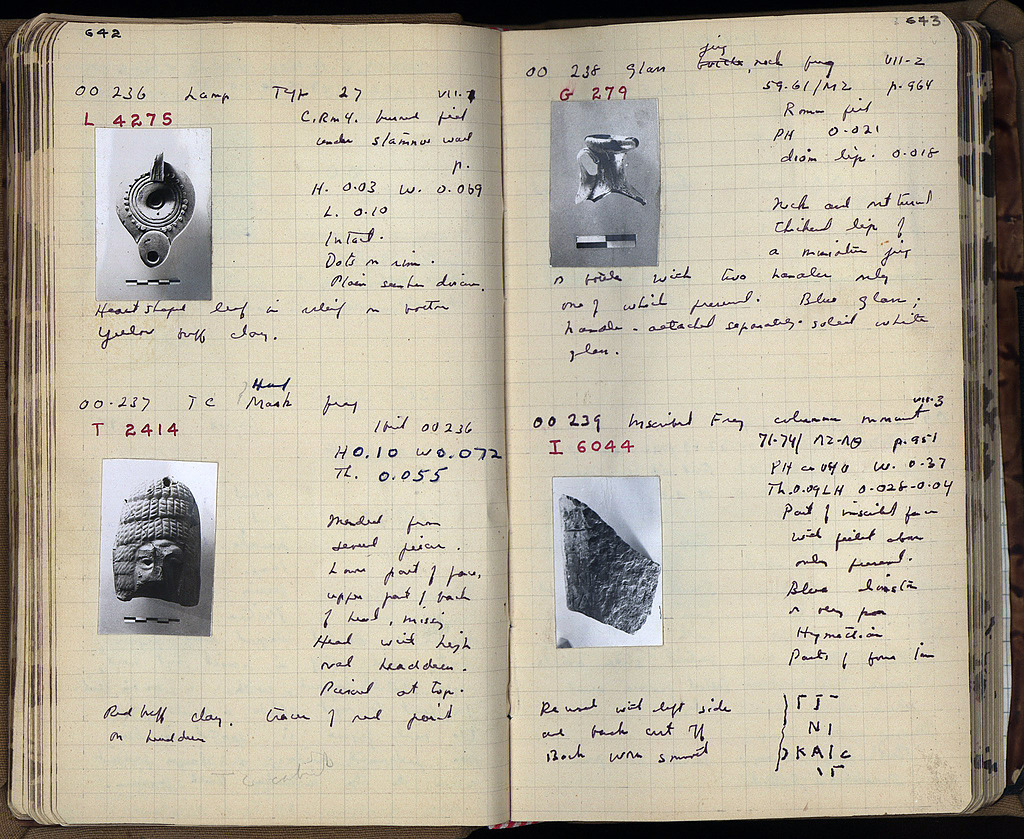 642
OO 236 Lamp Type 27 VII-1
L 4275
C.Rm 4. burned fill
under stamnos wall
p.
H. 0.03 W. 0.069
L. 0.10
Intact.
Dots on rim.
Plain sunken discus.
Heart shaped leaf in relief on bottom
Yellow buff clay.
Head
OO.237 TC Mask frag
T 2414
1bid OO 236
H 0.10 W 0.072
Th. 0.055
Mended from
several pieces.
Lower part of face,
upper part of back
of head, missing
Head with high
oval headdress.
Pierced at top.
Red buff clay. traces of red paint
on headdress
643
jug
OO 238 Glass bottle, neck frag VII-2
G 279
59-61/ p. 964
Roman fill
PH 0.021
diam lip. 0.018
Neck and outturned
thickened lip of
a miniature jug
or bottle with two handles only
one of which present. Blue glass;
handle - attached separately - solid white
glass.
VII-3
OO 239 Inscribed Frag columnar monument
I 6044
71-74/ p. 951
PH ca 040 W. 0.37
Th. 0.09 LH 0.028-0.04
Part of inscribed face
with fillet above
only present.
Blue
or very poor
Hymettian
Parts of four lines
Reused with left side
and back cut off
Back worn smooth
Γ Γ
Ν Ι
Κ Α Ι
Γ